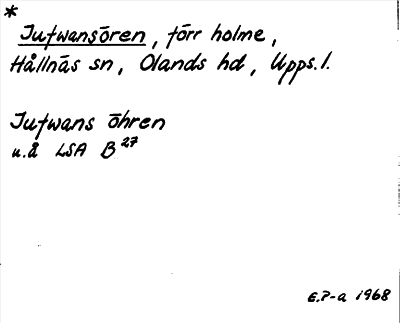 *
Jutwansören, förr holme,
Hållnäs sn, Olands hd, Upps.l.
Jutwans öhren
u.å LSA B 27
E.P-a 1968